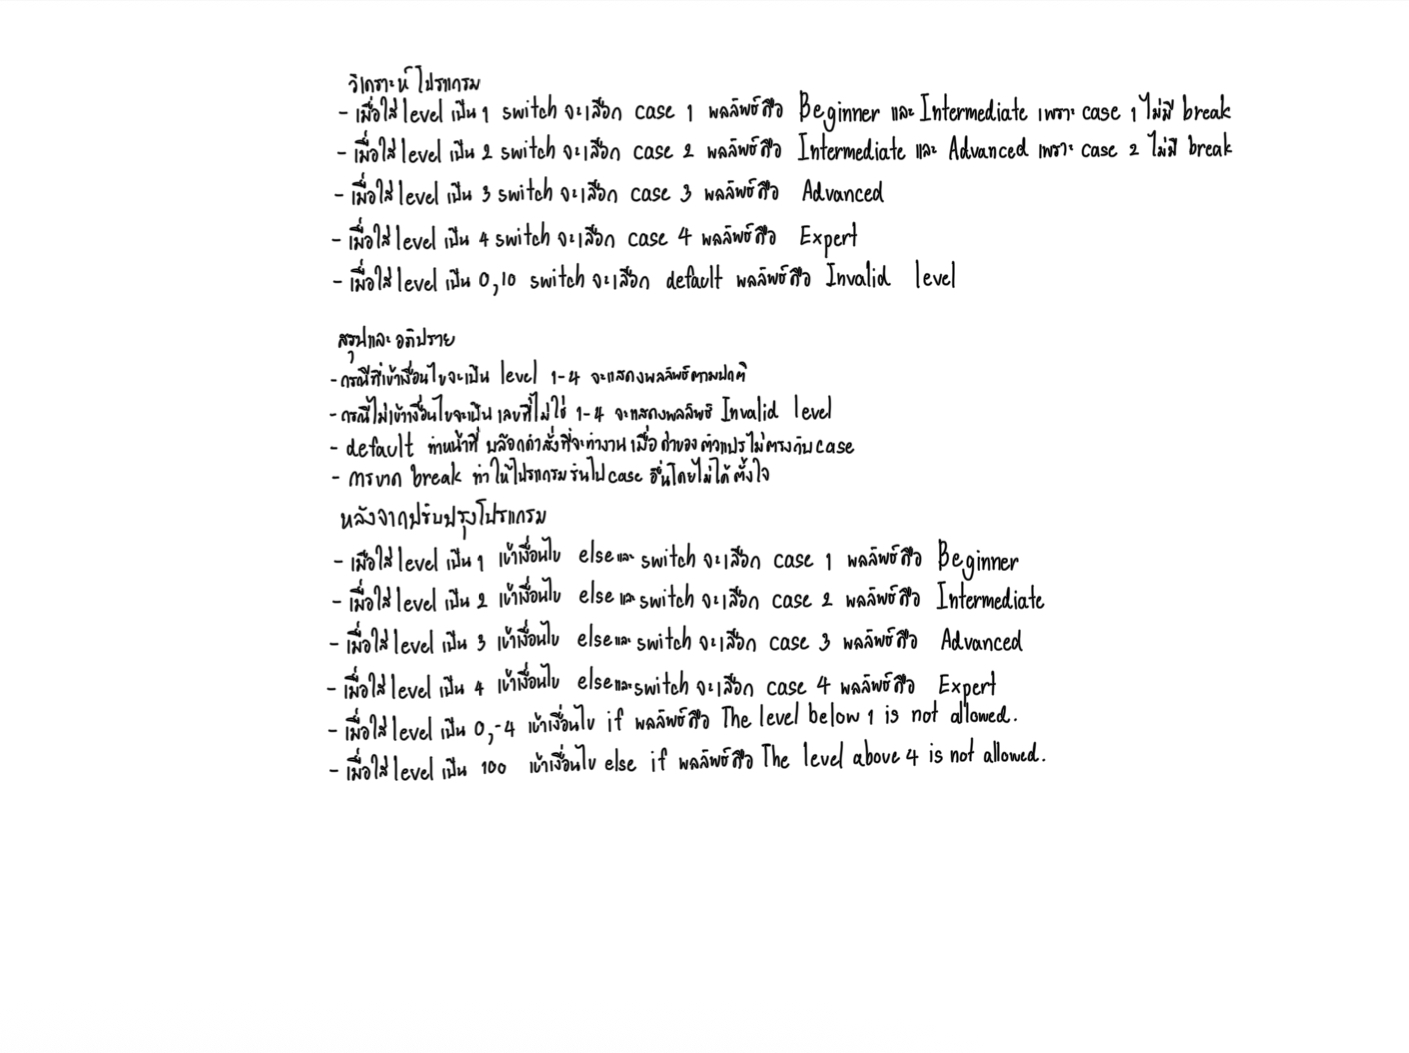 วิเคราะห์ โปรแกรม
- เมื่อใส่ level เป็น 1 switch จะเลือก case 1 ผลลัพธ์คือ Beginner และ Intermediate เพราะ case 1 ไม่มี break
- เมื่อใส่ level เป็น 2 switch จะเลือก case 2 ผลลัพธ์คือ Intermediate และ Advanced เพราะ case 2 ไม่มี break
- เมื่อใส่ level เป็น 3 switch จะเลือก case 3 ผลลัพธ์คือ Advanced
- เมื่อใส่ level เป็น 4 switch จะเลือก case 4 ผลลัพธ์คือ Expert
- เมื่อใส่ level เป็น 0,10 switch จะเลือก default ผลลัพธ์คือ Invalid level
สรุปและ อภิปราย
- กรณีที่เข้าเงื่อนไขจะเป็น level 1-4 จะแสดงผลลัพธ์ตามปกติ
- กรณีไม่เข้าเงื่อนไขจะเป็น เลขที่ไม่ใช่ 1-4 จะแสดงผลลัพธ์ Invalid level
- default ทำหน้าที่ บล็อกคำสั่งที่จะทำงาน เมื่อ ค่าของ ตัวแปร ไม่ตรงกับ case
- การขาด break ทำให้โปรแกรม รันไป case อื่นโดยไม่ได้ ตั้งใจ
หลังจากปรับปรุงโปรแกรม
- เมื่อใส่ level เป็น 1 เข้าเงื่อนไข else และ switch จะเลือก case 1 ผลลัพธ์คือ Beginner
- เมื่อใส่ level เป็น 2 เข้าเงื่อนไข else และ switch จะเลือก case 2 ผลลัพธ์คือ Intermediate
- เมื่อใส่ level เป็น 3 เข้าเงื่อนไข else และ switch จะเลือก case 3 ผลลัพธ์คือ Advanced
- เมื่อใส่ level เป็น 4 เข้าเงื่อนไข else และ switch จะเลือก case 4 ผลลัพธ์คือ Expert
- เมื่อใส่ level เป็น 0,-4 เข้าเงื่อนไข if ผลลัพธ์คือ The level below 1 is not allowed.
- เมื่อใส่ level เป็น 100 เข้าเงื่อนไข else if ผลลัพธ์คือ The level above 4 is not allowed.